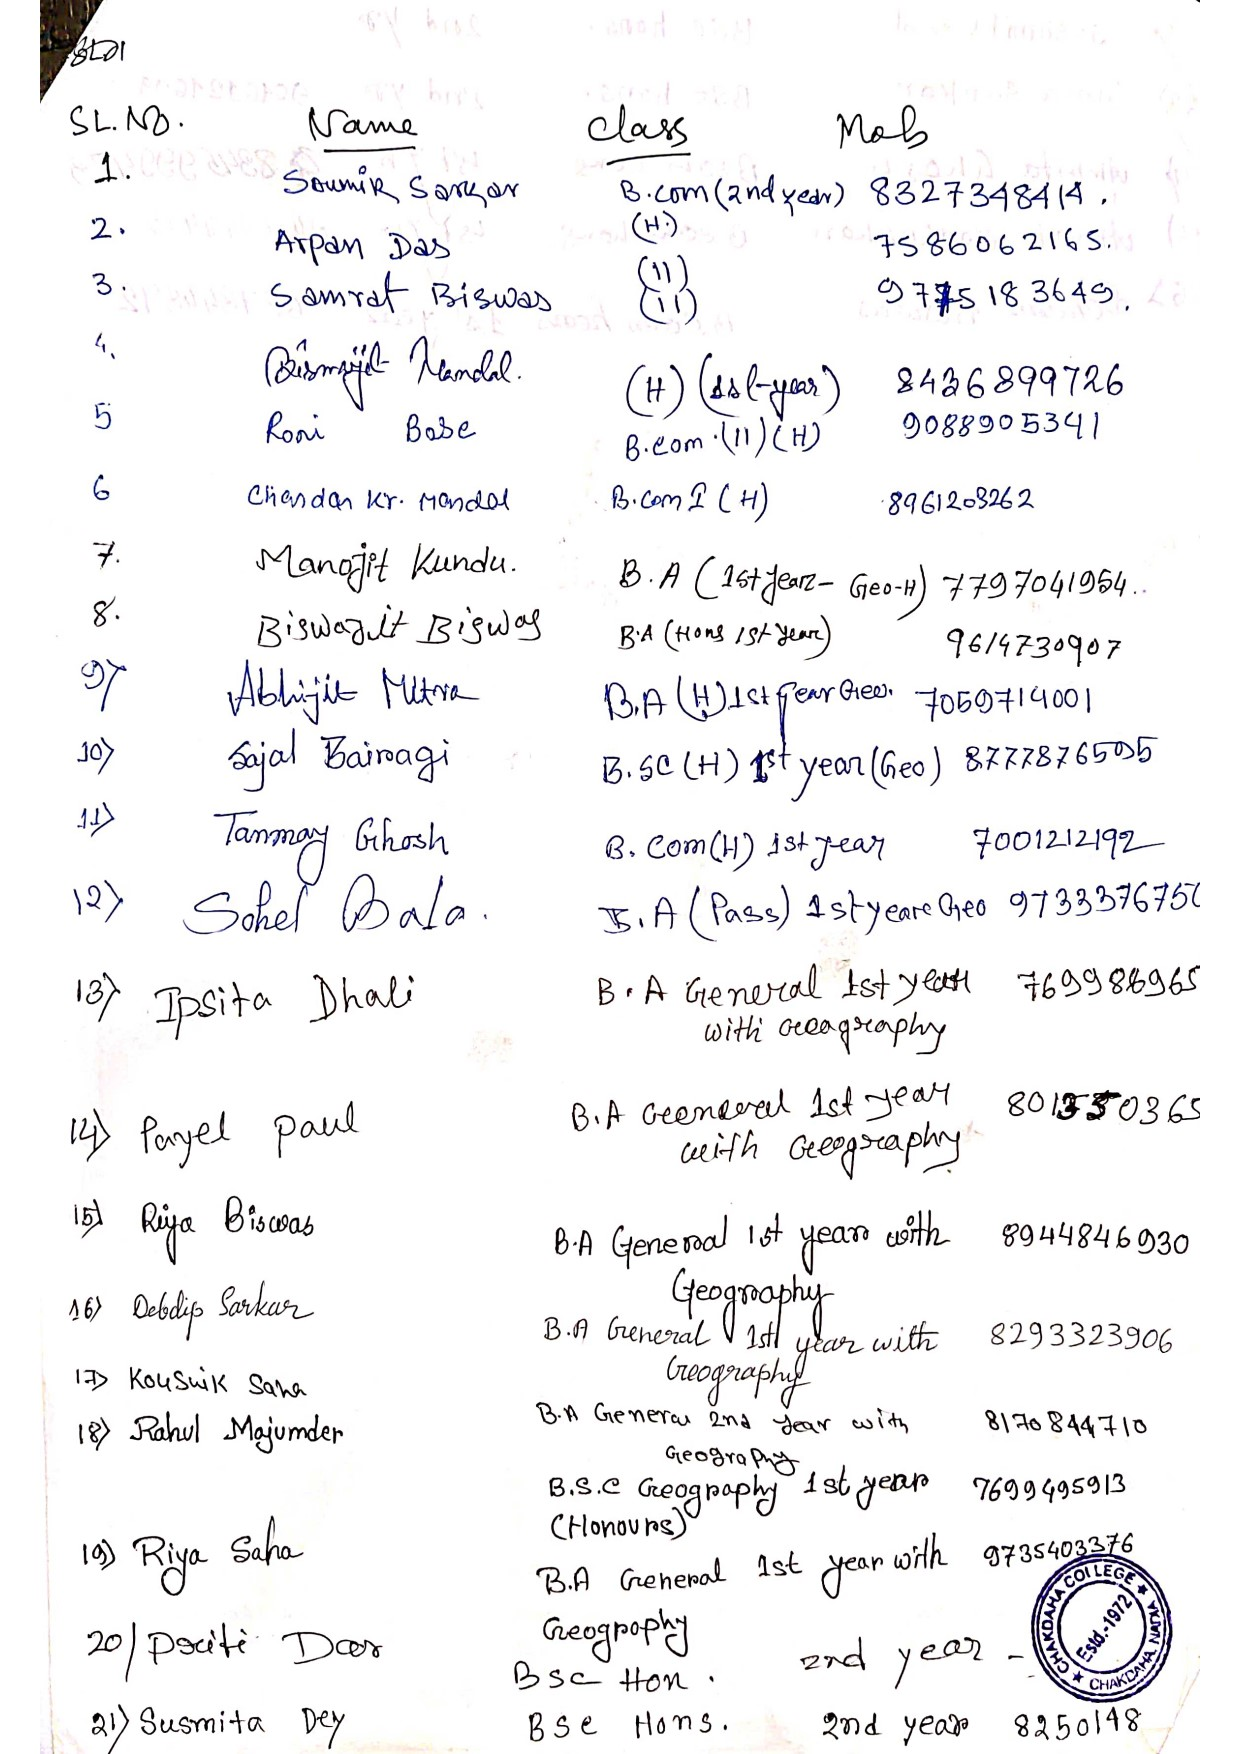 SL.NO. Name Class Mob
1. Soumik Sarkar B.com (2nd year) 8327348414.
2. Arpan Das (H) 7586062165.
3. Samrat Biswas (11) (11) 9775183649.
4. Biswajit Mandal. (H) (1st-year) 8436899726
5 Roni Bose B.com.(11)(H) 9088905341
6 Chandan Kr. Mandal B.com I (H) 8961203262
7. Manojit Kundu. B.A (1st year- Geo-H) 7797041954..
8. Biswajit Biswas B.A (Hons 1st Year) 9614730907
9) Abhijit Mitra B.A (H) 1st year Geo. 7059714001
10) Sajal Bairagi B.SC (H) 1st year (Geo) 8777876505
11) Tanmay Ghosh B. Com(H) 1st year 7001212192
12) Sohel Bala. B.A (Pass) 1st yeare Geo 973337675
13) Ipsita Dhali B.A General 1st year 769986965
with Geography
14) Payel Paul B.A General 1st year 8013350365
with Geography
15) Riya Biswas B.A General 1st year with 8944846930
Geography
16) Debdip Sarkar B.A General 1st year with 8293323906
Geography
17) Kousik Saha
18) Rahul Majumder B.A General 2nd year with 8170844710
Geography
B.S.C Geography 1st year 7699495913
(Honours)
19) Riya Saha B.A General 1st year with 9735403376
Geography
20/ Das BSC Hon. 2nd year -
21) Susmita Dey BSc Hons. 2nd year 8250148
CHAKDAHA COLLEGE
Estd.-1972
CHAKDAHA, NADIA